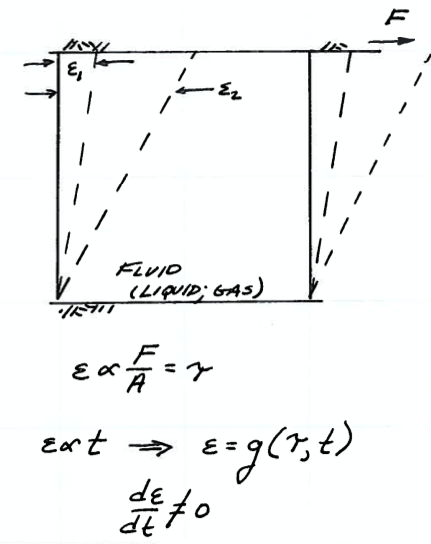 F
ε₁
ε₂
FLUID
(LIQUID; GAS)
ε ∝ F/A = τ
ε ∝ t ⟹ ε = g(τ, t)
dε/dt ≠ 0